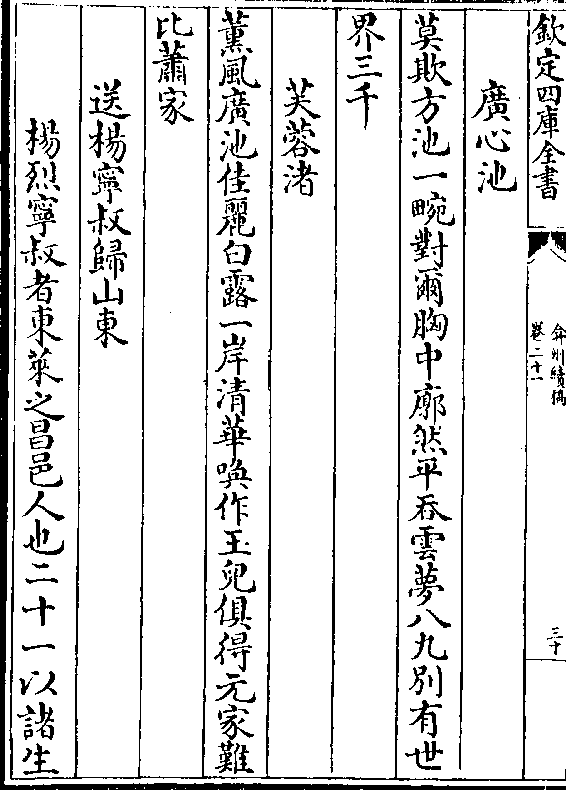 欽定四庫全書
弇州續稿
卷二十一
三十
廣心池
莫欺方池一畹對爾胸中廓然平吞雲夢八九別有世
界三千
芙蓉渚
薰風廣池佳麗白露一岸清華喚作玉兒俱得元家難
比蕭家
送楊寧叔歸山東
楊烈寧叔者東萊之昌邑人也二十一以諸生